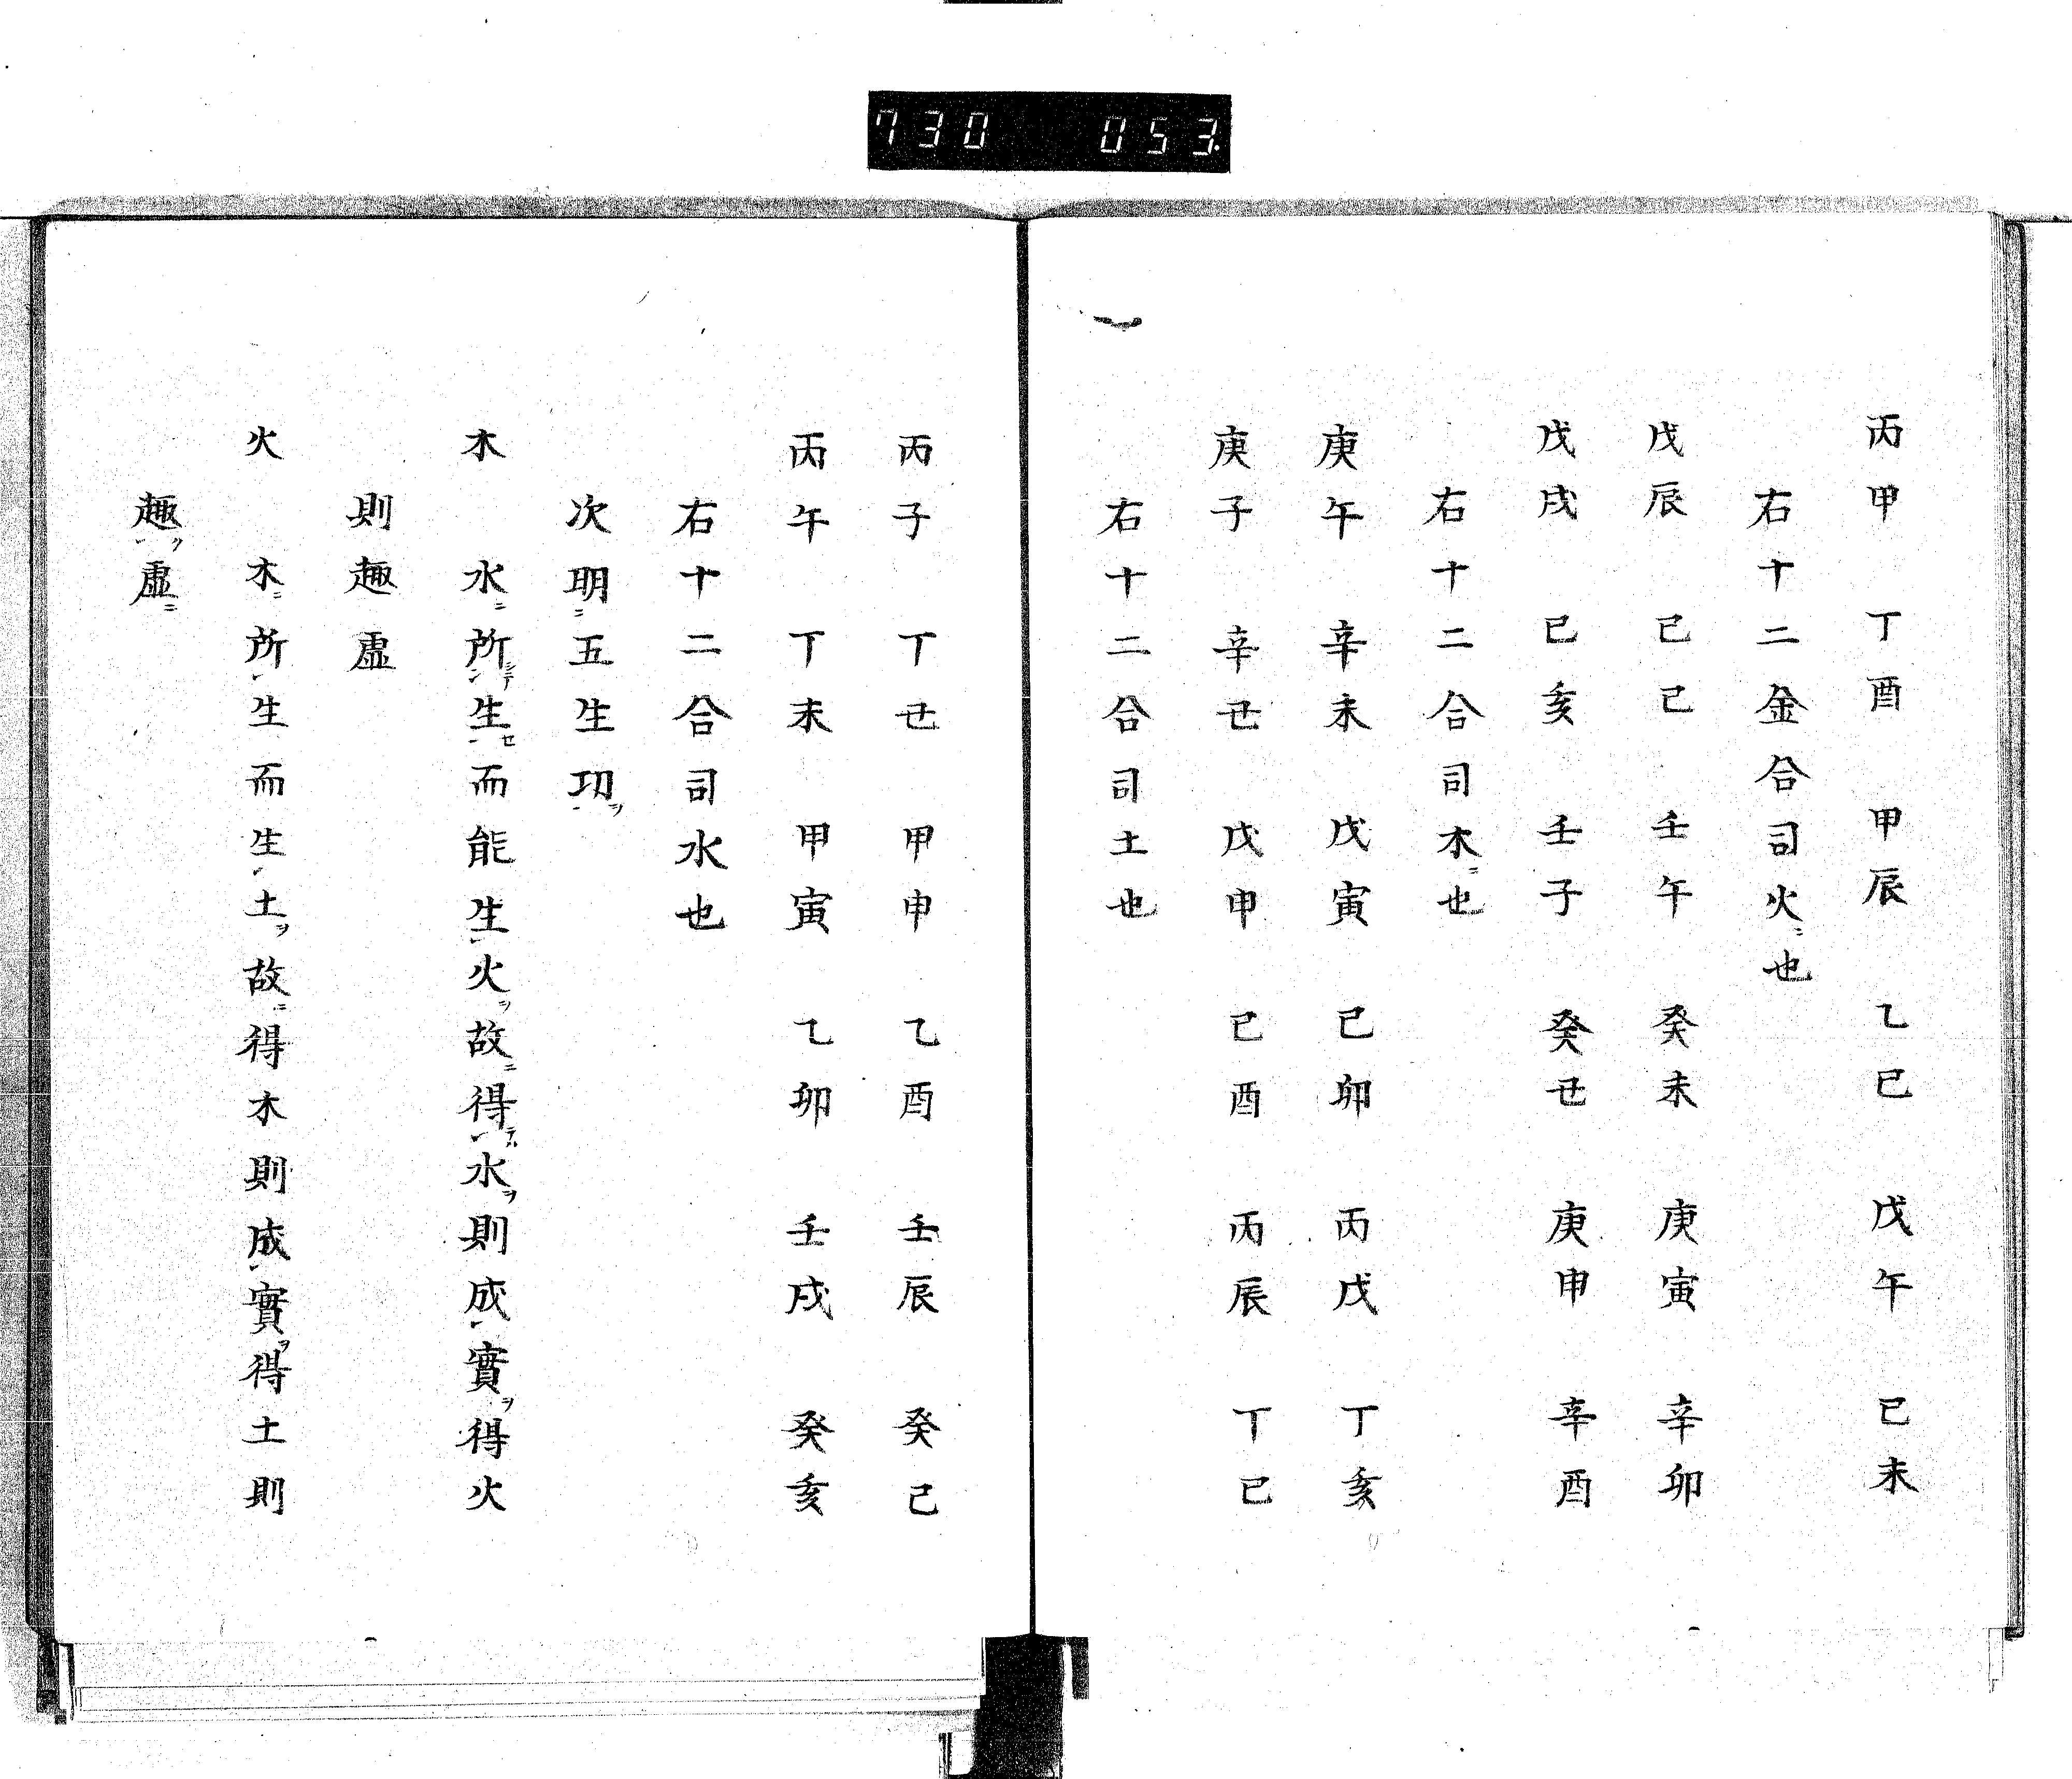 730 053
丙甲 丁酉 甲辰 乙巳 戊午 已未
右十二金合司火ニ也
戊辰 已巳 壬午 癸未 庚寅 辛卯
戊戌 已亥 壬子 癸丑 庚申 辛酉
右十二合司木ニ也
庚午 辛未 戊寅 已卯 丙戊 丁亥
庚子 辛丑 戊申 已酉 丙辰 丁巳
右十二合司土也
丙子 丁丑 甲申 乙酉 壬辰 癸己
丙午 丁未 甲寅 乙卯 壬戌 癸亥
右十二合司水也
次明ニ五生功ヲ
木 水ニ所レ生セ而能生レ火ヲ故ニ得レ水ヲ則成レ實ヲ得火
則趣虛
火 木ニ所レ生而生レ土ヲ故ニ得木則成レ實ヲ得土則
趣レ虛ニ